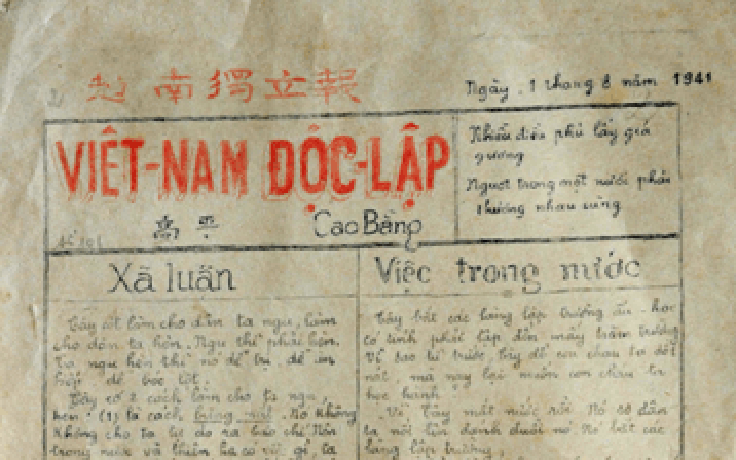 越南獨立報
Ngày 1 tháng 8 năm 1941
VIỆT-NAM ĐỘC-LẬP
高平 Cao Bằng
Nhiễu điều phủ lấy giá
gương
Người trong một nước phải
thương nhau cùng
Xã luận
Tây cốt làm cho dân ta ngu, làm
cho dân ta hèn. Ngu thì phải hèn.
Ta ngu hèn thì nó dễ trị, dễ áp
dễ bóc lột.
Tây có 2 cách làm cho ta ngu,
hèn: (1) là cách Nó không
không cho ta tự do ra báo chí. Nên
trong nước và thiên hạ có việc gì, ta
Việc trong nước
Tây bắt các làng lập trường ấu-học
có tỉnh phải lập đến mấy trăm trường
Vì sao từ trước, Tây để con cháu ta dốt
nát, mà nay lại muốn con cháu ta
học hành
Vì Tây mất nước rồi. Nó sợ dân
ta nổi lên đánh đuổi nó. Nó bắt các
làng lập trường,